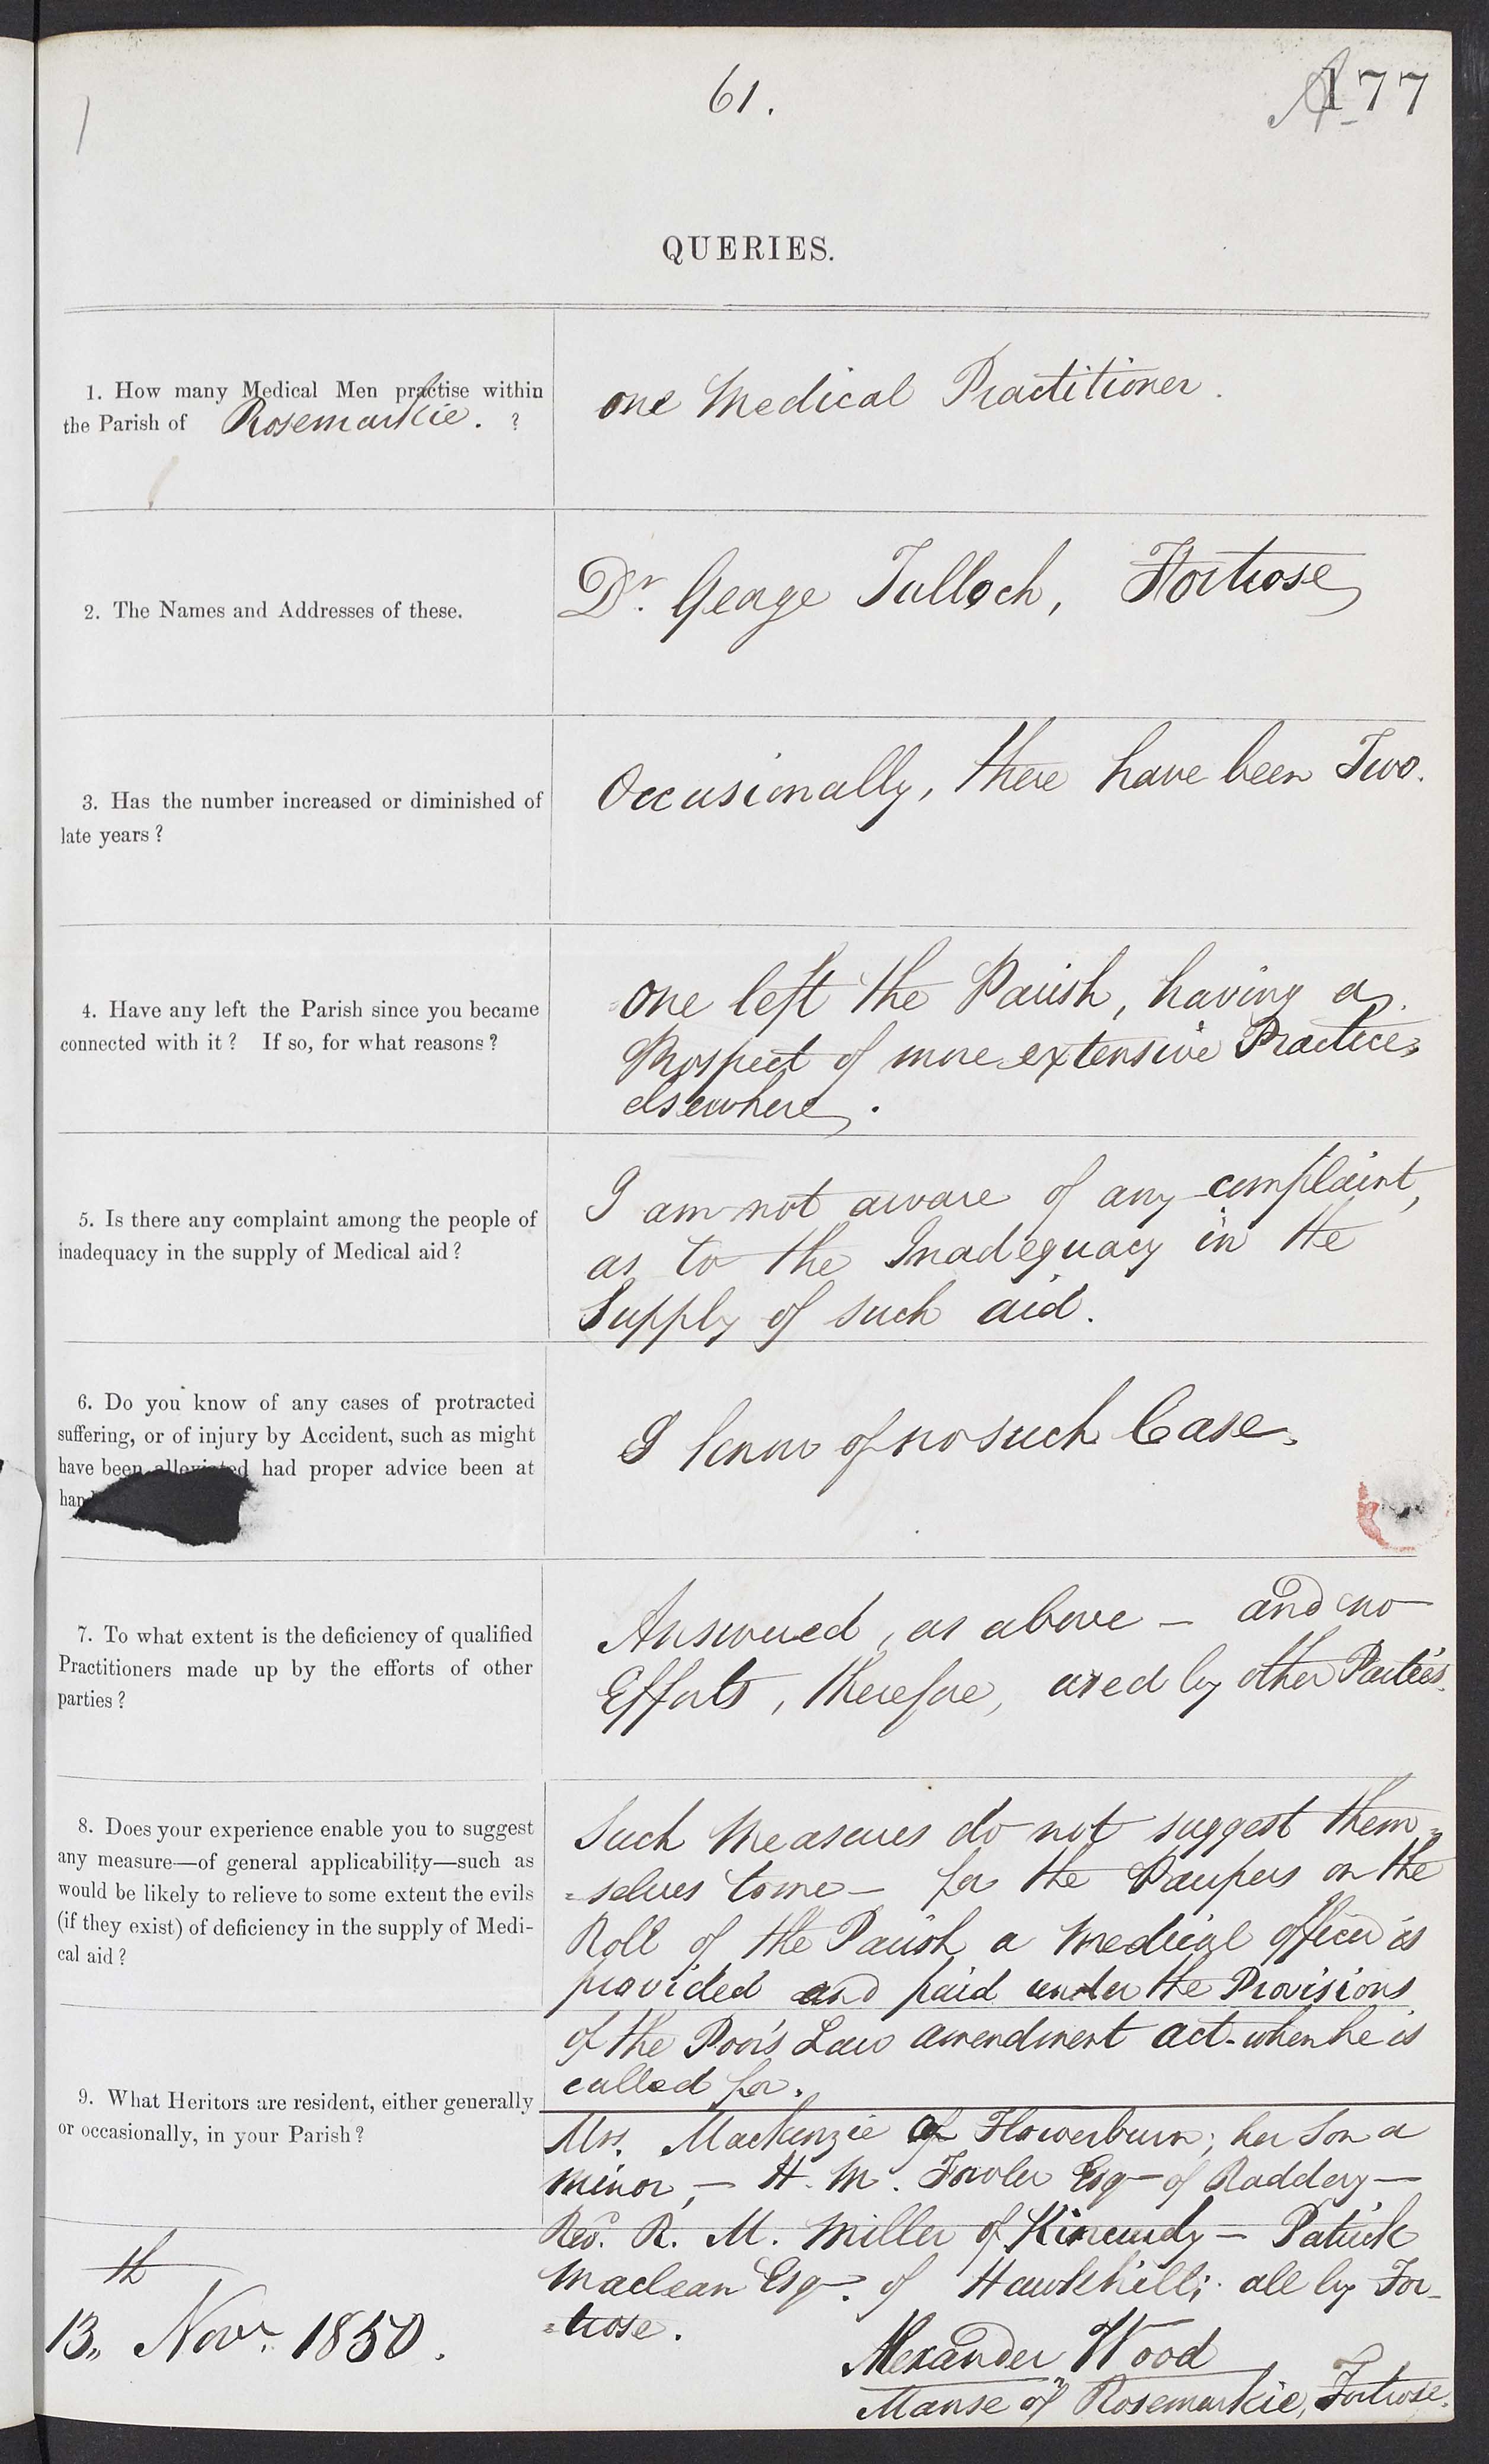 61.
177
QUERIES.
1. How many Medical Men practise within
the Parish of Rosemarkie. ?
one Medical Practitioner.
2. The Names and Addresses of these.
Dr. George Tulloch, Fortrose
3. Has the number increased or diminished of
late years?
Occasionally, there have been Two.
4. Have any left the Parish since you became
connected with it? If so, for what reasons?
one left the Parish, having a
Prospect of more extensive Practice
elsewhere.
5. Is there any complaint among the people of
inadequacy in the supply of Medical aid?
I am not aware of any complaint,
as to the Inadequacy in the
Supply of such aid.
6. Do you know of any cases of protracted
suffering, or of injury by Accident, such as might
have been alleviated had proper advice been at
I know of no such Case.
7. To what extent is the deficiency of qualified
Practitioners made up by the efforts of other
parties?
Answered, as above – and no
Efforts, therefore, used by other Parties.
8. Does your experience enable you to suggest
any measure—of general applicability—such as
would be likely to relieve to some extent the evils
(if they exist) of deficiency in the supply of Medi-
cal aid?
Such Measures do not suggest them=
=selves to me – for the Paupers on the
Roll of the Parish a Medical officer is
provided and paid under the Provisions
of the Poor's Law amendment act - when he is
called for.
9. What Heritors are resident, either generally
or occasionally, in your Parish?
Mrs. Mackenzie of Flowerburn; her Son a
minor, – H. M. Fowler Esqr of Raddery –
Revd. R. M. Miller of Kincurdy – Patrick
Maclean Esqr. of Hawkhill; all by For-
=trose.
13th Novr. 1850.
Alexander Wood
Manse of Rosemarkie, Fortrose.